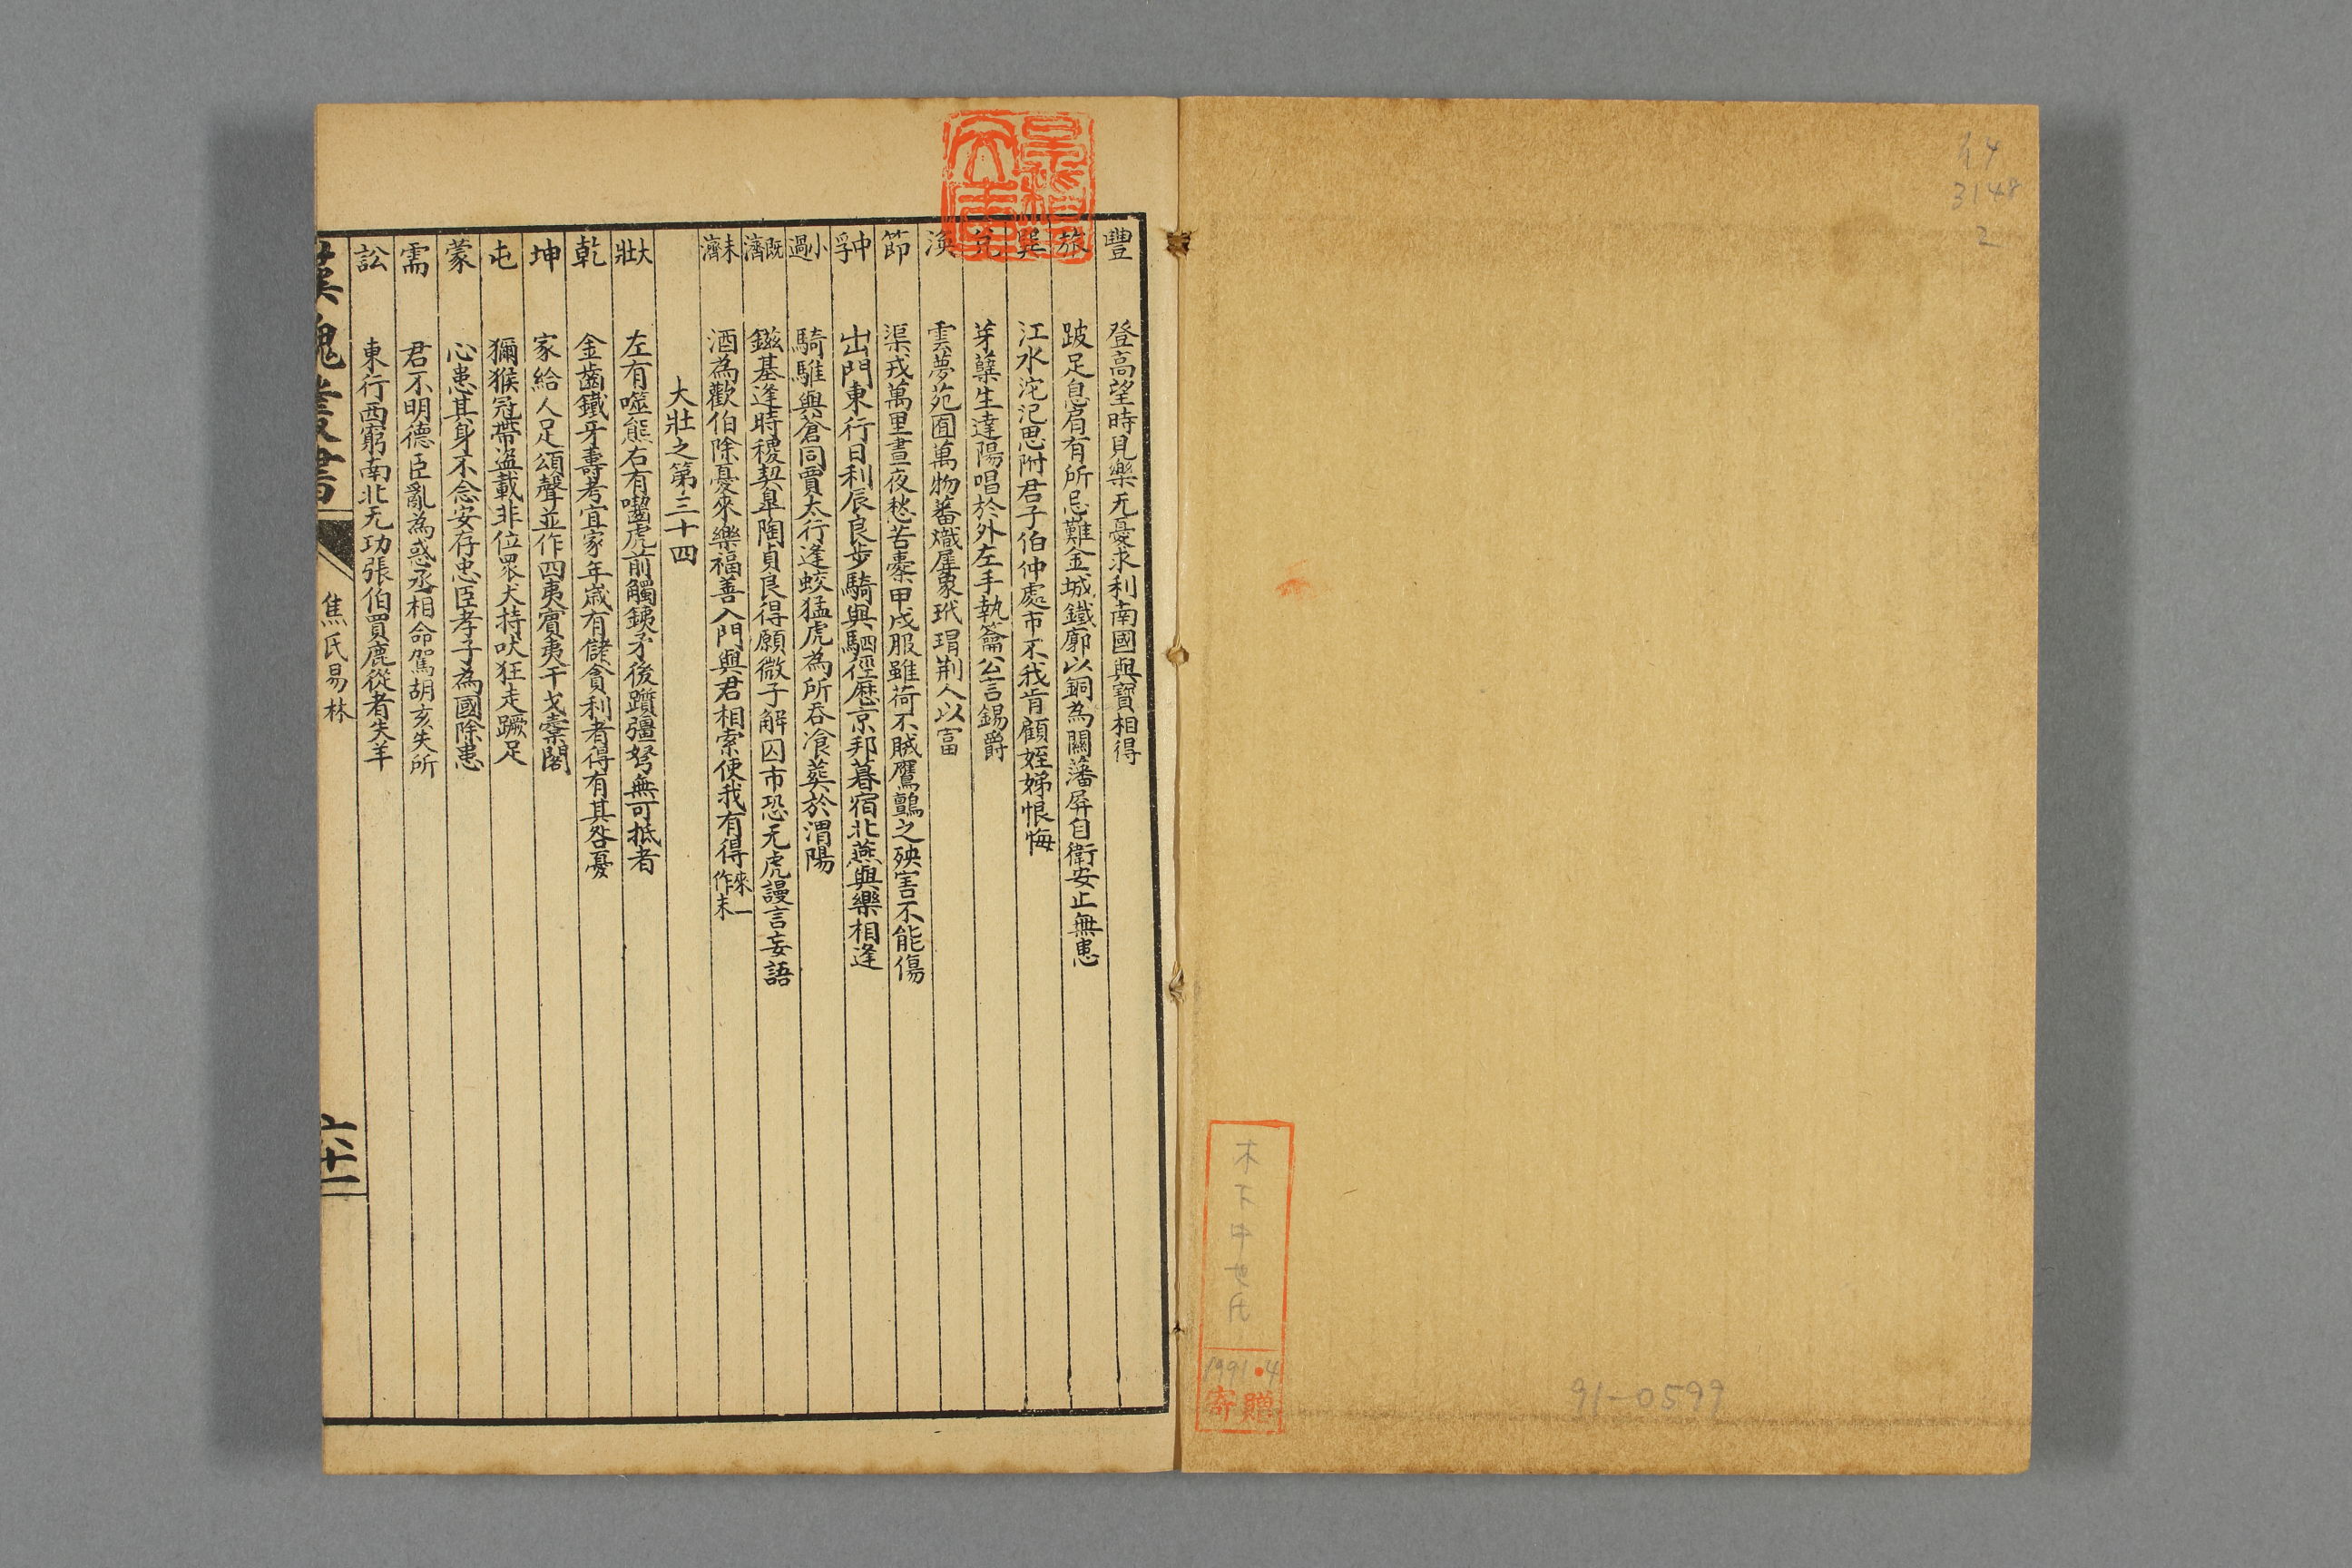 3148
2
91-0599
木下中也氏
1991.4
寄贈
豐 登高望時見樂无憂求利南國與寶相得
旅 跛足息肩有所忌難金城鐵廓以銅為關藩屏自衛安止無患
巽 江水沱汜思附君子伯仲處市不我肯顧姪娣恨悔
兌 芽蘖生達陽唱於外左手執籥公言錫爵
渙 雲夢苑囿萬物蕃熾犀象玳瑁荆人以富
節 渠戎萬里晝夜愁苦櫜甲戍服雖荷不賊鷹鸇之殃害不能傷
中孚 出門東行日利辰良步騎與駟徑歷京邦暮宿北燕與樂相逢
小過 騎騅與蒼同賈太行逢蛟猛虎為所吞飡葬於渭陽
既濟 鎡基逢時稷契臯陶貞良得願微子解囚市恐无虎謾言妄語
未濟 酒為歡伯除憂來樂福善入門與君相索使我有得 來一作末
大壯之第三十四
大壯 左有噬熊右有囓虎前觸鋑矛後躓彊弩無可抵者
乾 金齒鐵牙壽考宜家年歲有儲貪利者得有其咎憂
坤 家給人足頌聲並作四夷賓夷干戈櫜閣
屯 獼猴冠帶盜載非位衆犬持吠狂走蹶足
蒙 心患其身不念安存忠臣孝子為國除患
需 君不明德臣亂為惑丞相命駕胡亥失所
訟 東行西窮南北无功張伯買鹿從者失羊
漢魏叢書 焦氏易林 六十一